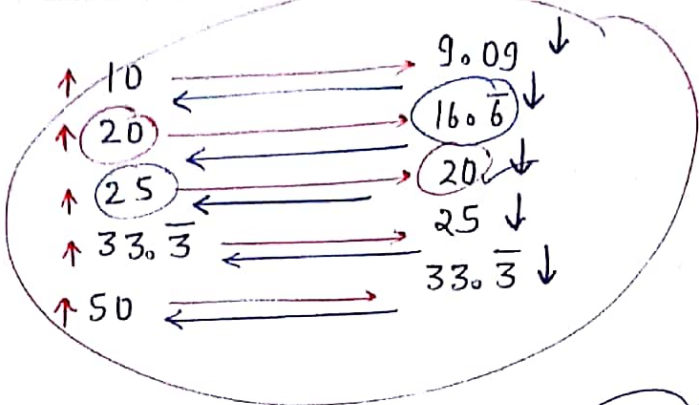 ↑ 10 → ← 9.09 ↓
↑ 20 → ← 16.6̅ ↓
↑ 25 → ← 20 ↓
↑ 33.3̅ → ← 25 ↓
↑ 50 → ← 33.3̅ ↓